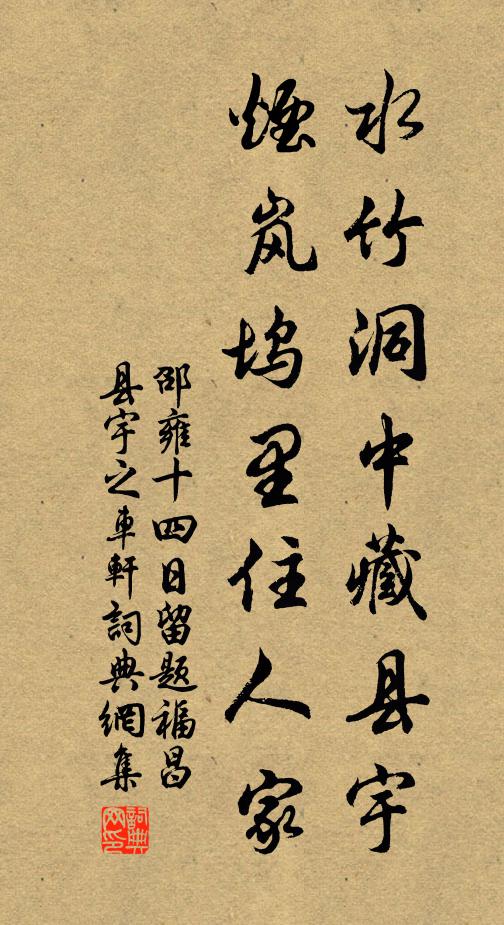 水竹洞中藏县宇
烟岚坞里住人家
邵雍十四日留题福昌
县宇之車軒詞典網集
詞典网印